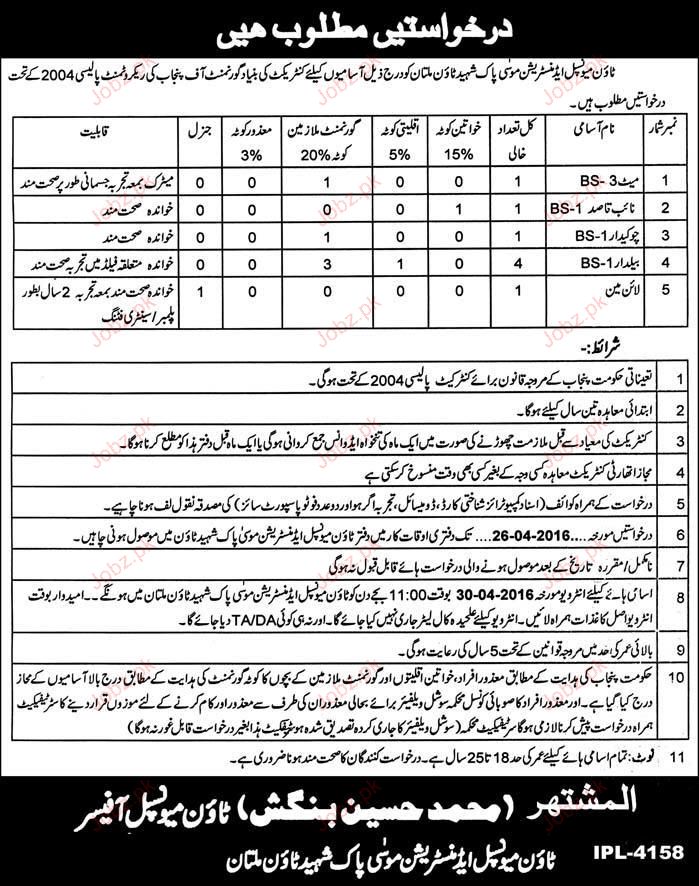 درخواستیں مطلوب ھیں
ٹاؤن میونسپل ایڈمنسٹریشن موسیٰ پاک شہید ٹاؤن ملتان کو درج ذیل آسامیوں کیلئے کنٹریکٹ کی بنیاد گورنمنٹ آف پنجاب کی ریکروٹمنٹ پالیسی 2004 کے تحت
درخواستیں مطلوب ہیں۔
نمبر شمار نام آسامی کل تعداد خالی خواتین کوٹہ 15% اقلیتی کوٹہ 5% گورنمنٹ ملازمین کوٹہ 20% معذور کوٹہ 3% جنرل قابلیت
1 میٹ BS-3 1 0 0 1 0 0 میٹرک بمعہ تجربہ جسمانی طور پر صحت مند
2 نائب قاصد BS-1 1 1 0 0 0 0 خواندہ صحت مند
3 چوکیدار BS-1 1 0 0 1 0 0 خواندہ صحت مند
4 بیلدار BS-1 4 0 1 3 0 0 خواندہ متعلقہ فیلڈ میں تجربہ صحت مند
5 لائن مین 1 0 0 0 0 1 خواندہ صحت مند بمعہ تجربہ 2 سال بطور
پلمبر/سینٹری فٹنگ
شرائط:-
1 تعیناتی حکومت پنجاب کے مروجہ قانون برائے کنٹرکیٹ پالیسی 2004 کے تحت ہوگی۔
2 ابتدائی معاہدہ تین سال کیلئے ہوگا۔
3 کنٹریکٹ کی معیاد سے قبل ملازمت چھوڑنے کی صورت میں ایک ماہ کی تنخواہ ایڈوانس جمع کروانی ہوگی یا ایک ماہ قبل دفتر ہذا کو مطلع کرنا ہوگا۔
4 مجاز اتھارٹی کنٹریکٹ معاہدہ کسی وجہ کے بغیر کسی بھی وقت منسوخ کرسکتی ہے
5 درخواست کے ہمراہ کوائف (اسناد کمپیوٹرائز شناختی کارڈ، ڈومیسائل، تجربہ اگر ہو اور دو عدد فوٹو پاسپورٹ سائز) کی مصدقہ نقول لف ہونا چاہیے۔
6 درخواستیں مورخہ ....26-04-2016.... تک دفتری اوقات کار میں دفتر ٹاؤن میونسپل ایڈمنسٹریشن موسیٰ پاک شہید ٹاؤن میں موصول ہونی چاہیں۔
7 نامکمل/مقررہ تاریخ کے بعد موصول ہونے والی درخواست ہائے قابل قبول نہ ہوگی
8 اسائں ہائے کیلئے انٹرویو مورخہ 30-04-2016 بوقت 11:00 بجے دن کو ٹاؤن میونسپل ایڈمنسٹریشن موسیٰ پاک شہید ٹاؤن ملتان میں ہونگے۔۔ امیدوار بوقت
انٹرویو اصل کاغذات ہمراہ لائیں۔ انٹرویو کیلئے علحیدہ کال لیٹر جاری نہیں کیا جائے گا۔ اور نہ ہی کوئی TA/DA دیا جائے گا۔
9 بالائی عمر کی حد میں مروجہ قوانین کے تحت 5 سال کی رعایت ہوگی۔
10 حکومت پنجاب کی ہدایت کے مطابق معذور افراد، خواتین اقلیتوں اور گورنمنٹ ملازمین کے بچوں کا کوٹہ گورنمنٹ کی ہدایت کے مطابق درج بالا آسامیوں کے مجاز
درج کیا گیا ہے۔ اور معذور افراد کا صوبائی کونسل محکمہ سوشل ویلفیئر برائے بحالی معذوران کی طرف سے معذور اور کام کرنے کے لئے موزوں قرار دینے کا سرٹیفیکیٹ
ہمراہ درخواست پیش کرنا لازمی ہوگا سرٹیفیکیٹ محکمہ (سوشل ویلفیئر کا جاری کردہ تصدیق شدہ ہو سرٹیفکیٹ ہذا بغیر درخواست قابل غور نہ ہوگا)
11 نوٹ: تمام اسامی ہائے کیلئے عمر کی حد 18 تا 25 سال ہے۔ درخواست کنندگان کا صحت مند ہونا ضروری ہے۔
المشتھر (محمد حسین بنگش) ٹاؤن میونسپل آفیسر
ٹاؤن میونسپل ایڈمنسٹریشن موسیٰ پاک شہید ٹاؤن ملتان
IPL-4158
Jobz.pk